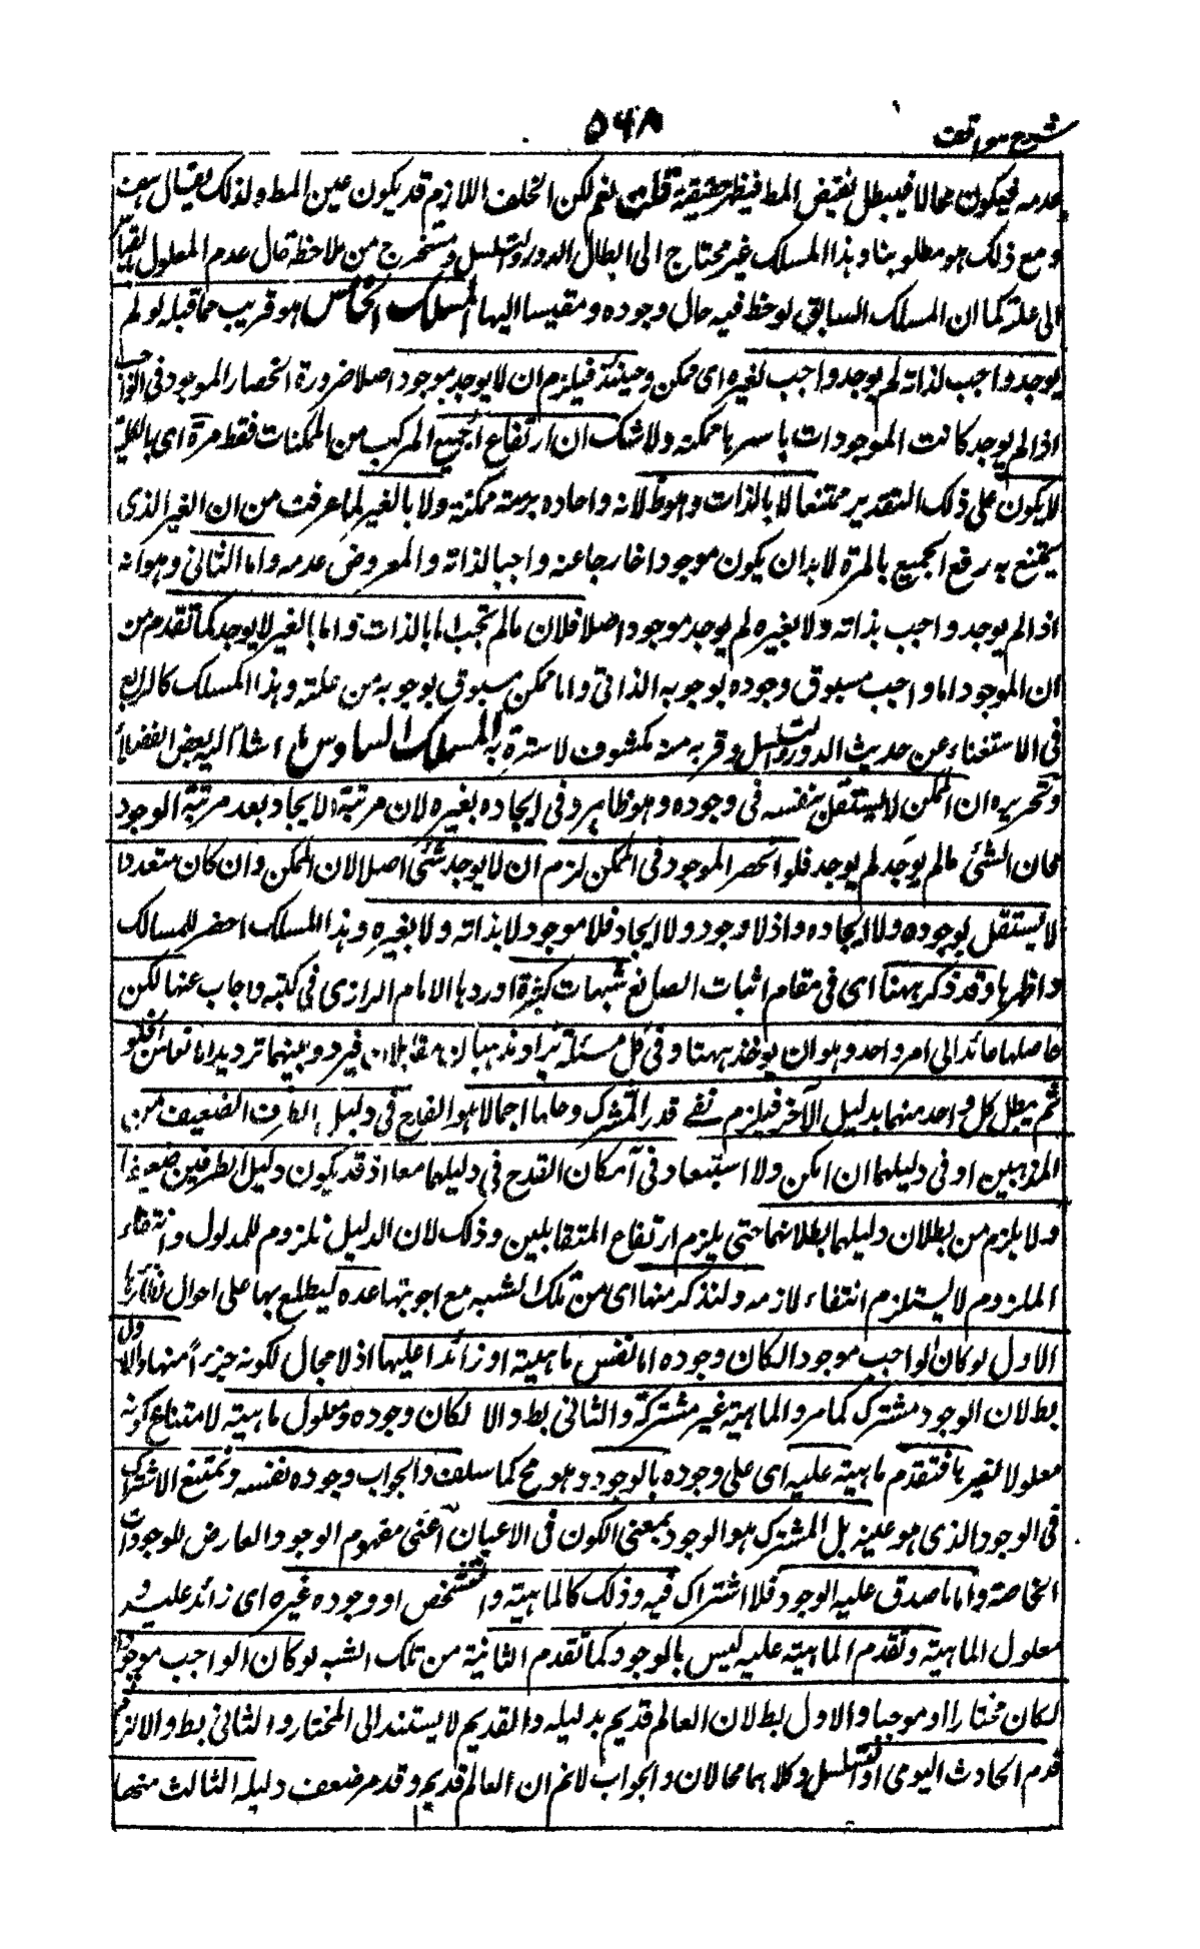 شرح مواقف
٥٦٨
عدمه فيكون محالا فيبطل نقيض المط فيظهر حقيقته قلت نعم لكن الخلف اللازم قد يكون عين المط ولذلك يقال هف
ومع ذلك هو مطلوبنا وهذا المسلك غير محتاج الى ابطال الدور والتسلسل ومستخرج من ملاحظة حال عدم المعلول بالقياس
الى علته كما ان المسلك السابق لوحظ فيه حال وجوده ومقيسا اليها المسلك الخامس هو قريب مما قبله لو لم
يوجد واجب لذاته لم يوجد واجب لغيره اى ممكن وحينئذ فيلزم ان لا يوجد موجود اصلا ضرورة انحصار الموجود فى الواجب
اذا لم يوجد كانت الموجودات باسرها ممكنه ولا شك ان ارتفاع الجميع المركب من الممكنات فقط مرة اى بالكلية
لا يكون على ذلك التقدير ممتنعا لا بالذات وهو ظ لانه واحاده برمته ممكنة ولا بالغير لما عرفت من ان الغير الذى
يمتنع به رفع الجميع بالمرة لا بد ان يكون موجودا خارجا عنه واجبا لذاته والمعروض عدمه واما الثانى وهو انه
اذا لم يوجد واجب بذاته ولا بغيره لم يوجد موجود اصلا فلان ما لم يجب اما بالذات واما بالغير لا يوجد كما تقدم من
ان الموجود اما واجب مسبوق وجوده بوجوبه الذاتى واما ممكن مسبوق بوجوبه من علته وهذا المسلك كالرابع
فى الاستغناء عن حديث الدور والتسلسل وقربه منه مكشوف لا سترة به المسلك السادس ما اشار اليه بعض الفضلاء
وتحريره ان الممكن لا يستقل بنفسه فى وجوده وهو ظاهر وفى ايجاده بغيره لان مرتبة الايجاد بعد مرتبة الوجود
فان الشئ ما لم يوجد لم يوجد فلو انحصر الموجود فى الممكن لزم ان لا يوجد شئ اصلا لان الممكن وان كان متعددا
لا يستقل بوجوده ولا ايجاده واذ لا وجود ولا ايجاد فلا موجود لا بذاته ولا بغيره وهذا المسلك احضر المسالك
واظهرها وقد ذكر ههنا اى فى مقام اثبات الصانع شبهات كثيرة اوردها الامام الرازى فى كتبه واجاب عنها لكن
حاصلها عائد الى امر واحد وهو ان يؤخذ ههنا وفى كل مسئلة يراد مذهبان متقابلان فيردد بينهما ترديدا مانعا من الخلو
ثم يبطل كل واحد منهما بدليل الآخر فيلزم نفى قدر المشترك وحلها اجمالا هو القدح فى دليل الطرف الضعيف من
المذهبين او فى دليلهما ان امكن ولا استبعاد فى امكان القدح فى دليلهما معا اذ قد يكون دليل الطرفين ضعيفا
ولا يلزم من بطلان دليلهما بطلانهما حتى يلزم ارتفاع المتقابلين وذلك لان الدليل ملزوم للمدلول وانتفاء
الملزوم لا يستلزم انتفاء لازمه ولنذكر منها اى من تلك الشبه مع اجوبتها عدة ليطلع بها على احوال نظائرها
الاول لو كان الواجب موجودا لكان وجوده اما نفس ماهيته او زائدا عليها اذ لا مجال لكونه جزءا منها والاول
بط لان الوجود مشترك كما مر والماهية غير مشتركة والثانى بط والا لكان وجوده معلول ماهيته لامتناع كونه
معلولا لغيرها فتقدم ماهيته عليه اى على وجوده بالوجود وهو مح كما سلف والجواب وجوده نفسه ونمتنع الاشتراك
فى الوجود الذى هو عينه بل المشترك هو الوجود بمعنى الكون فى الاعيان اعنى مفهوم الوجود العارض للوجودات
الخاصة واما ما صدق عليه الوجود فلا اشتراك فيه وذلك كالماهية والتشخص او وجوده غيره اى زائد عليه و
معلول الماهية وتقدم الماهية عليه ليس بالوجود كما تقدم الثانية من تلك الشبه لو كان الواجب موجودا
لكان مختارا او موجبا والاول بط لان العالم قديم بدليله والقديم لا يستند الى المختار والثانى بط والا لزم
قدم الحادث اليومى او التسلسل وكلاهما محالان والجواب لا نم ان العالم قديم وقد مر ضعف دليله الثالث منها